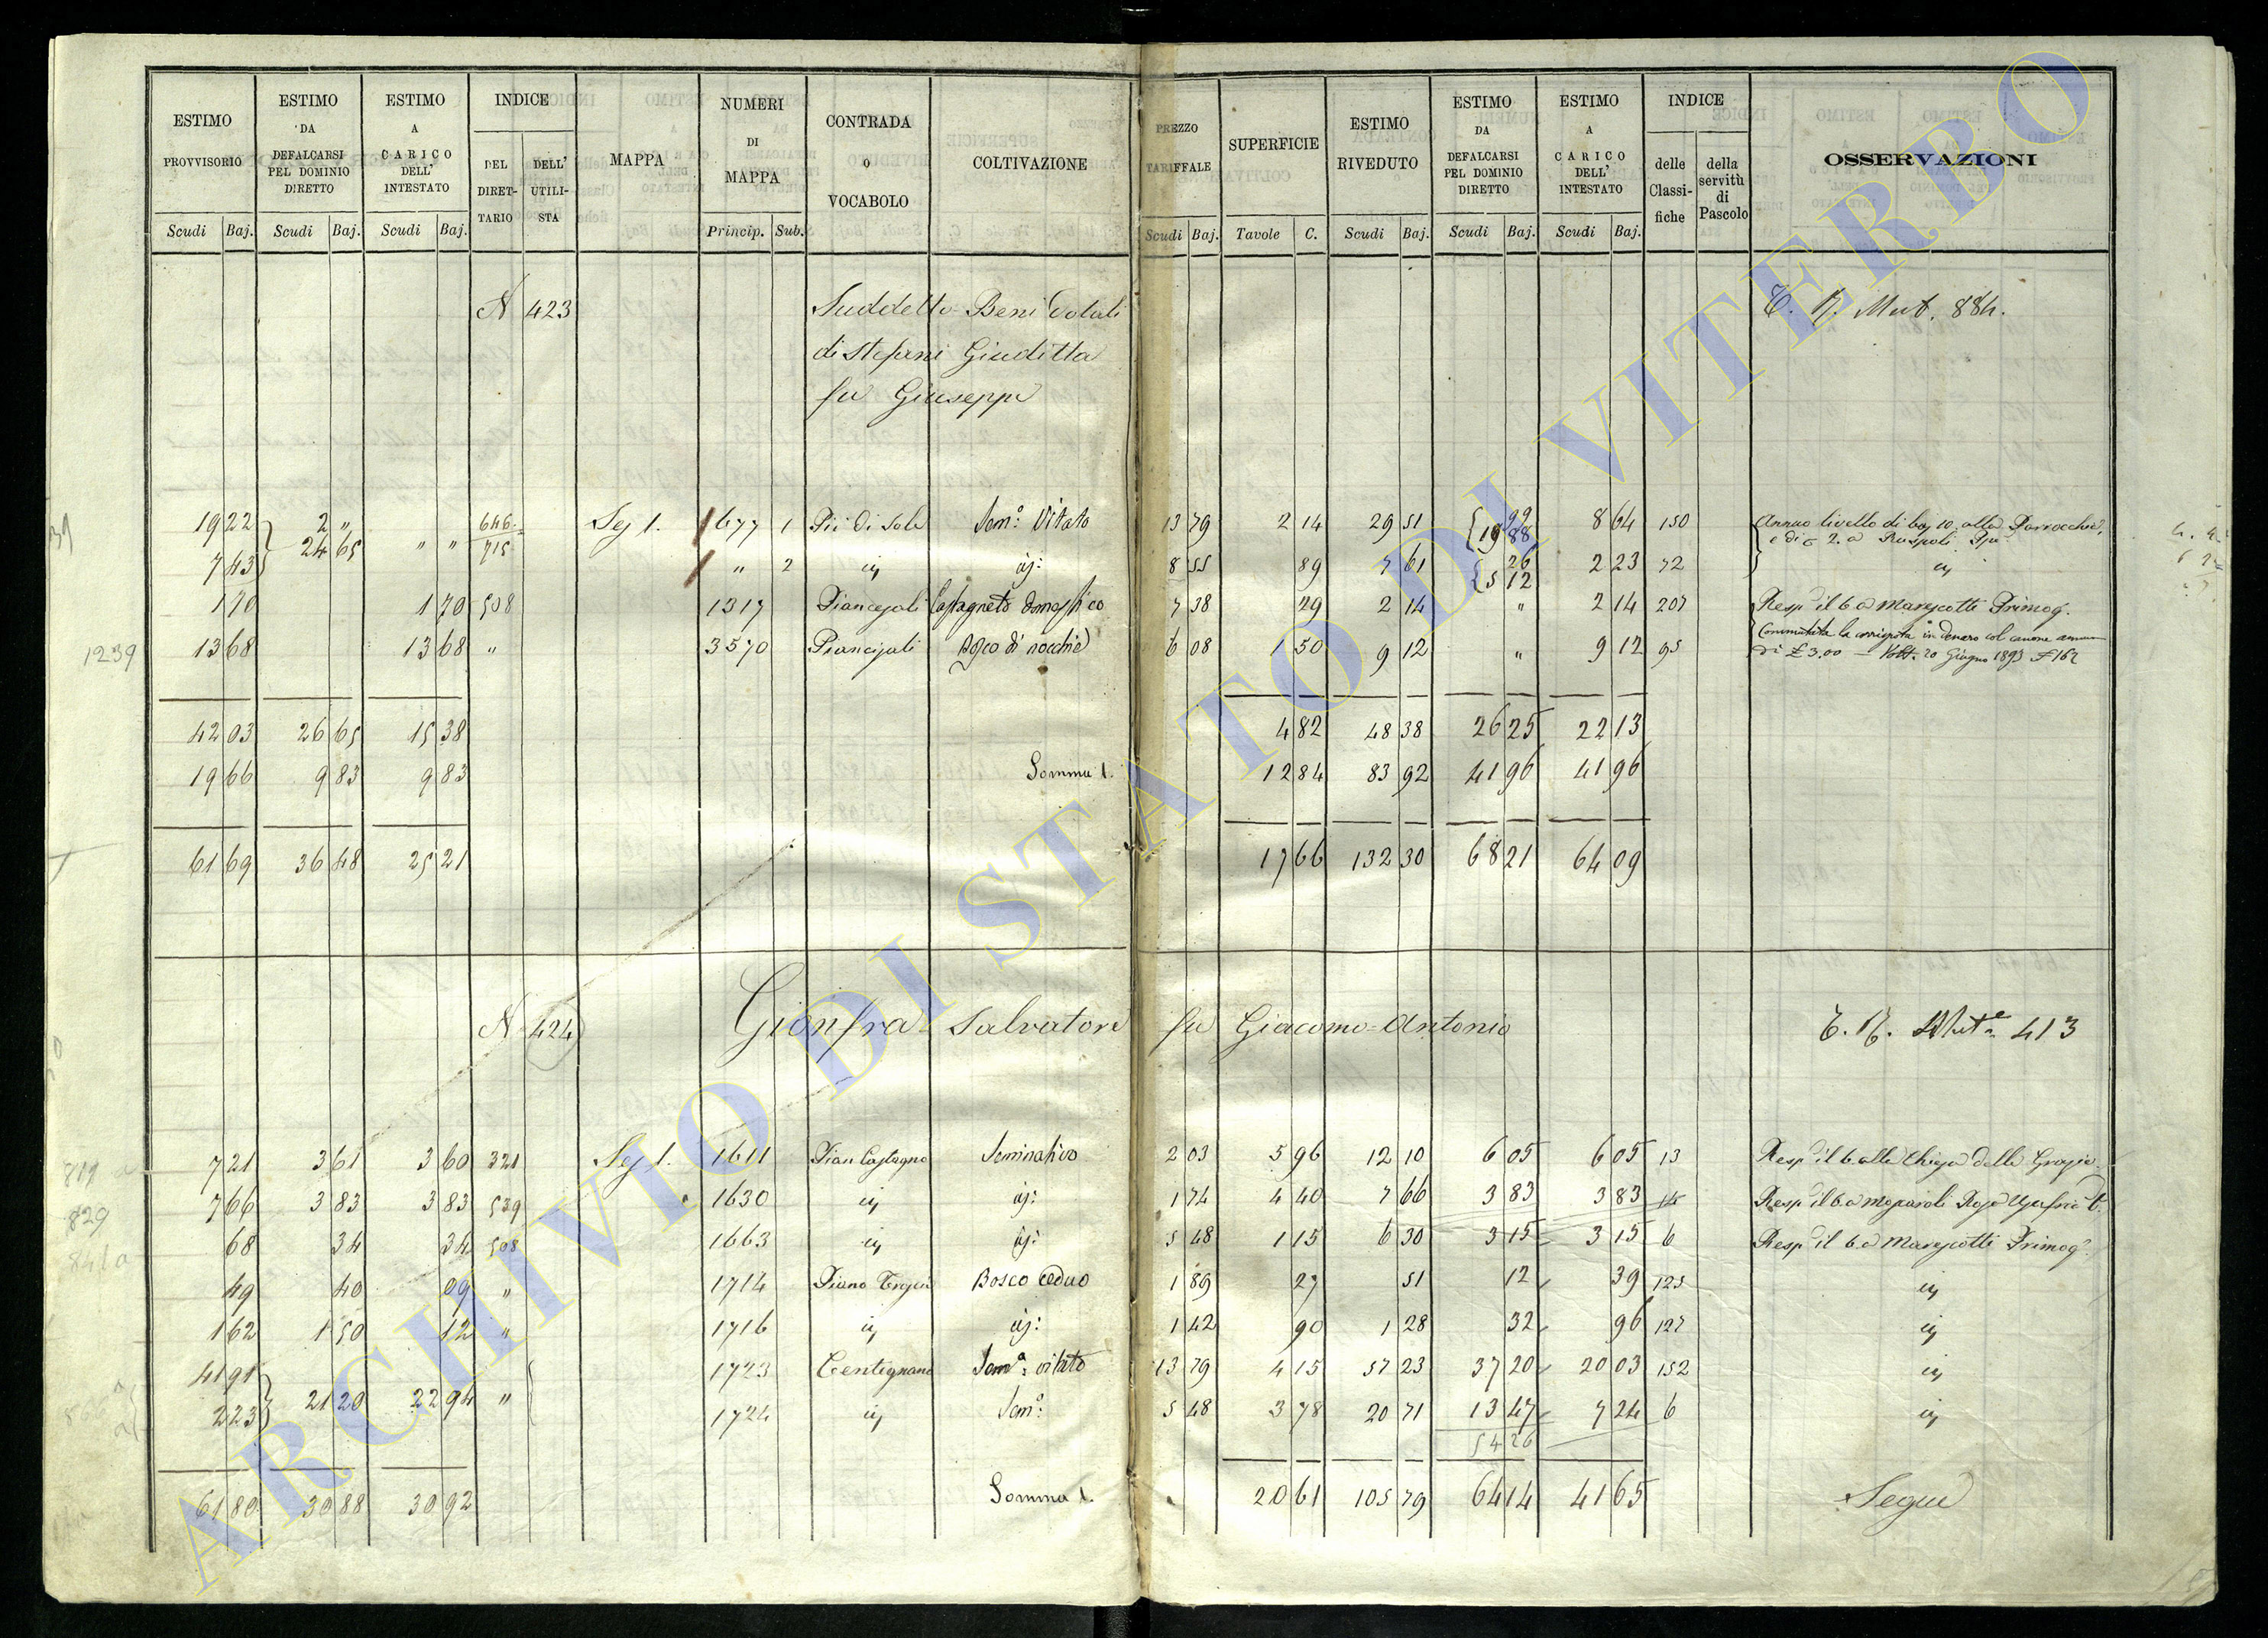 ESTIMO PROVVISORIO | ESTIMO DA DEFALCARSI PEL DOMINIO DIRETTO | ESTIMO A CARICO DELL' INTESTATO | INDICE DEL DIRET-TARIO | DELL' UTILI-STA | MAPPA | NUMERI DI MAPPA | CONTRADA O VOCABOLO | COLTIVAZIONE | PREZZO TARIFFALE | SUPERFICIE | ESTIMO RIVEDUTO | ESTIMO DA DEFALCARSI PEL DOMINIO DIRETTO | ESTIMO A CARICO DELL' INTESTATO | INDICE delle Classi-fiche | della servitù di Pascolo | OSSERVAZIONI
Scudi Baj. Scudi Baj. Scudi Baj. Princip. Sub. Scudi Baj. Tavole C. Scudi Baj. Scudi Baj. Scudi Baj.
N 423 Suddetto Beni Dotali T. V. Mut. 884.
di Stefani Giuditta
fu Giuseppe
19 22 2 " 646 Sez 1. 1677 1 Piè di Sole Sem.o Vitato 13 79 2 14 29 51 99 8 64 150 Annuo livello di baj 10 alla Parrocchia,
24 65 " " 715 19 88 e di 2. a Ruspoli
7 43 " 2 8 55 89 7 61 26 2 23 72
5 12
1 70 1 70 508 1317 Castagneto domestico 7 38 29 2 14 " 2 14 207 Resp il 6 a Marescotti Primog.
1239 13 68 13 68 " 3570 Bosco di nocchie 6 08 1 50 9 12 " 9 12 95 Commutata la corrisposta in denaro col canone annuo
di £ 3.00 20 Giugno 1893 162
42 03 26 65 15 38 4 82 48 38 26 25 22 13
19 66 9 83 9 83 Somma 1. 12 84 83 92 41 96 41 96
61 69 36 48 25 21 17 66 132 30 68 21 64 09
N 424 Gionfra Salvatore fu Giacomo-Antonio T. V. Mut. 413
7 21 3 61 3 60 321 Sez 1. 1611 Pian Castagno Seminativo 2 03 5 96 12 10 6 05 6 05 13 Resp il 6. alla Chiesa delle Grazie
829 7 66 3 83 3 83 539 1630 1 74 4 40 7 66 3 83 3 83 Resp il 6. a
841 a 68 34 34 508 1663 5 48 1 15 6 30 3 15 3 15 6 Resp il 6. a Marescotti Primog.
49 40 09 " 1714 Piano Bosco ceduo 1 89 27 51 12 39 125
1 62 1 50 12 " 1716 1 42 90 1 28 32 96 127
41 91 1723 Centignano Sem.o vitato 13 79 4 15 57 23 37 20 20 03 152
21 20 22 94 "
2 23 1724 Sem.o 5 48 3 78 20 71 13 47 7 24 6
54 26
61 80 30 88 30 92 Somma 1. 20 61 105 79 64 14 41 65 Segue
ARCHIVIO DI STATO DI VITERBO